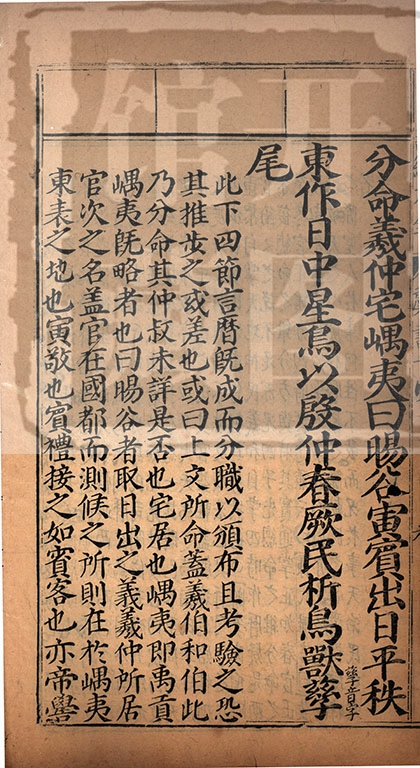 分命羲仲宅嵎夷曰暘谷寅賓出日平秩
東作日中星鳥以殷仲春厥民析鳥獸孳
尾
此下四節言暦旣成而分職以頒布且考驗之恐
其推步之或差也或曰上文所命蓋羲伯和伯此
乃分命其仲叔未詳是否也宅居也嵎夷即禹貢
嵎夷旣略者也曰暘谷者取日出之義羲仲所居
官次之名盖官在國都而測候之所則在於嵎夷
東表之地也寅敬也賓禮接之如賓客也亦帝嚳